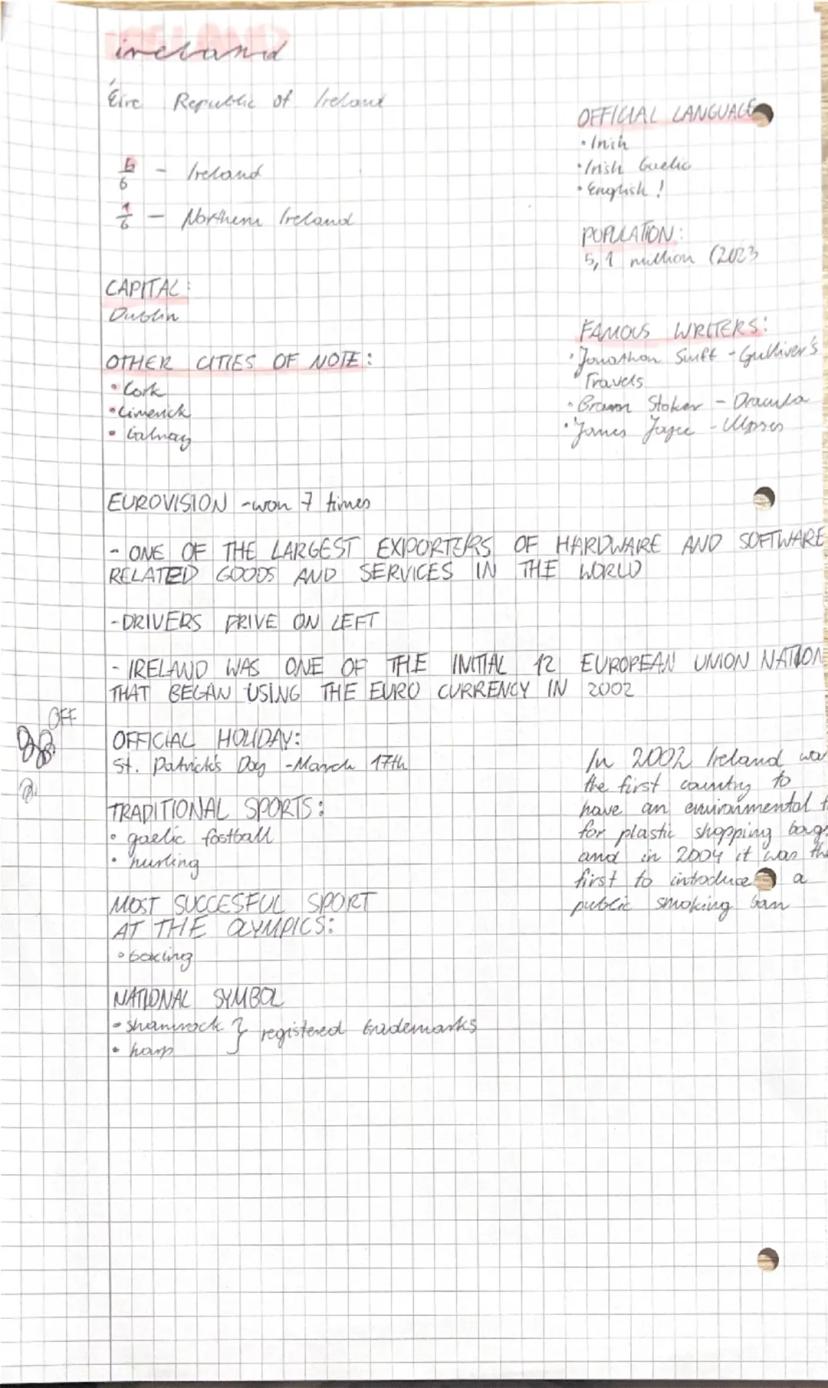 ireland
Éire Republic of Ireland
5/6 - Ireland
1/6 - Northern Ireland
CAPITAL:
Dublin
OTHER CITIES OF NOTE:
• Cork
• Limerick
• Galway
OFFICIAL LANGUAGE
• Irish
• Irish Gaelic
• English!
POPULATION:
5,1 million (2023
FAMOUS WRITERS:
• Jonathon Swift - Gulliver's
Travels
• Bram Stoker - Dracula
• James Joyce - Ulysses
EUROVISION - won 7 times
- ONE OF THE LARGEST EXPORTERS OF HARDWARE AND SOFTWARE
RELATED GOODS AND SERVICES IN THE WORLD
- DRIVERS DRIVE ON LEFT
- IRELAND WAS ONE OF THE INITIAL 12 EUROPEAN UNION NATION
THAT BEGAN USING THE EURO CURRENCY IN 2002
OFF
OFFICIAL HOLIDAY:
St. Patrick's Day - March 17th
TRADITIONAL SPORTS:
• gaelic football
• hurling
MOST SUCCESFUL SPORT
AT THE OLYMPICS:
• boxing
NATIONAL SYMBOL
• shamrock } registered trademarks
• harp
In 2002 Ireland was
the first country to
have an environmental t
for plastic shopping bags
and in 2004 it was the
first to introduce a
public smoking ban